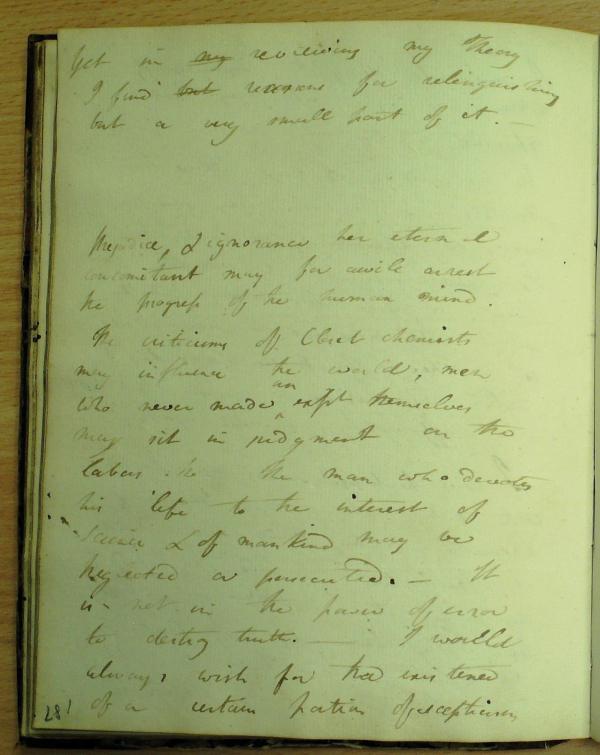 Yet in my reviewing my Theory
I find but reasons for relinquishing
but a very small part of it. —
Prejudice, & ignorance her eternal
concomitant may for awile arrest
the progress of the human mind.
The criticisms of Closet chemists
may influence the world, men
who never made an expt themselves
may sit in judgment on the
labors. The the man who devotes
his life to the interest of
science & of mankind may be
neglected or persecuted. — It
is not in the power of error
to destroy truth. — I would
always wish for the existence
of a certain portion of scepticism
281